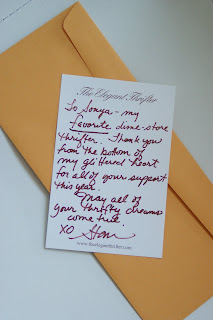 The Elegant Thrifter
To Sonya - my
favorite dime-store
thrifter. Thank you
from the bottom of
my glittered heart
for all of your support
this year.
May all of
your thrifty dreams
come true.
XO
www.theelegantthrifter.com